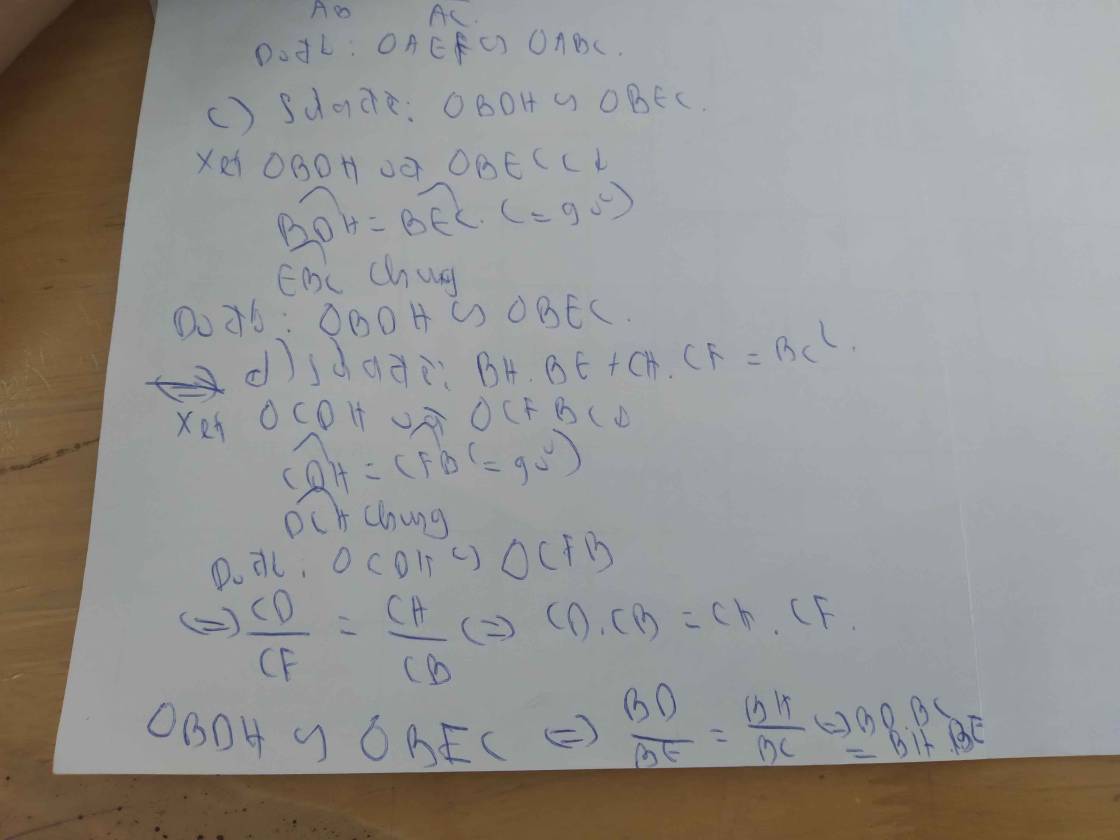 AB AC.
Do đó: ΔAEF ∽ ΔABC.
c) ΔBDH ∽ ΔBEC.
Xét ΔBDH và ΔBEC có
BDH = BEC (= 90°)
EBC chung
Do đó: ΔBDH ∽ ΔBEC.
d) BH.BE + CH.CF = BC².
Xét ΔCDH và ΔCFB có
CDH = CFB (= 90°)
DCH chung
Do đó: ΔCDH ∽ ΔCFB
(=) CD/CF = CH/CB (=) CD.CB = CH.CF.
ΔBDH ∽ ΔBEC (=) BD/BE = BH/BC (=) BD.BC = BH.BE